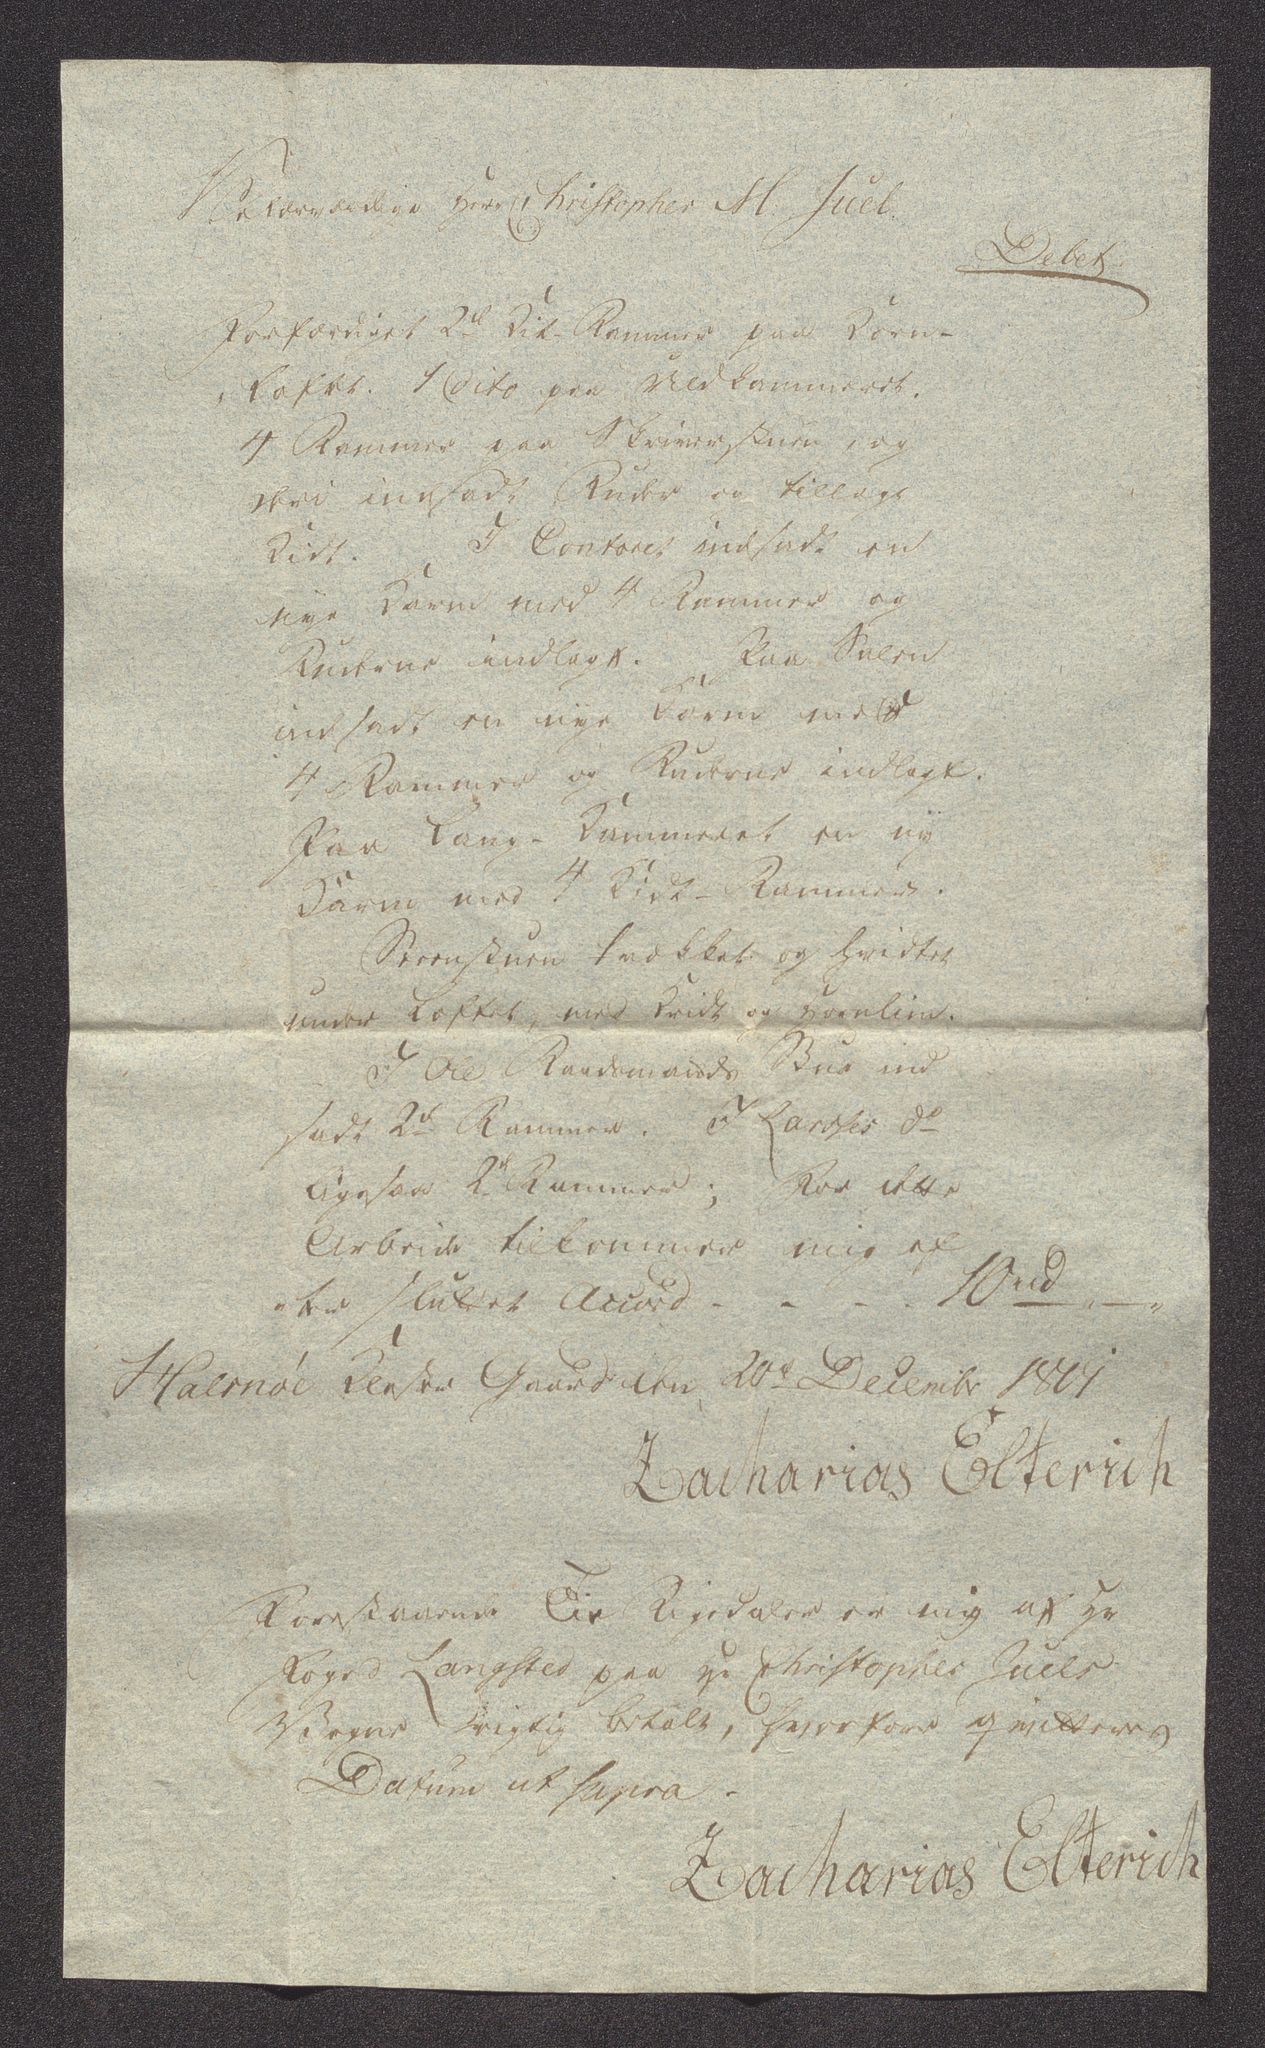 Velærværdige Herr Christopher M. Juel.
Debet
Forfærdiget 2de Kit-Rammer paa Korn-
Loftet. 1 dito paa Melkammeret.
4 Rammer paa Skriverstuen, og
deri indsadt Ruder og tillagt
Kidt. I Contoret indsadt en
nye Karm med 4 Rammer og
Ruderne indlagt. Paa Salen
indsadt en nye Karm med
4 Rammer og Ruderne indlagt.
Paa Lang-Kammeret en ny
Karm med 4 Kidt-Rammer.
trækket og hvidtet
under Loftet, med Kridt og Hornlim.
I Ole Raadsmands Stue ind
sadt 2de Rammer. I Larsses do
ligesaa 2de Rammer; For dette
Arbeide tilkommer mig ef
ter sluttet Accord - - - - 10 rd „ — „
Halsnøe Kloster Gaard den 20de December 1801
Zacharias Elterich
Forestaaende Tie Rigsdaler er mig af Hr
Foged Langsted paa Hr Christopher Juels
Vegne rigtig betalt, hvorfore qvitteres
Datum ut supra -
Zacharias Elterich